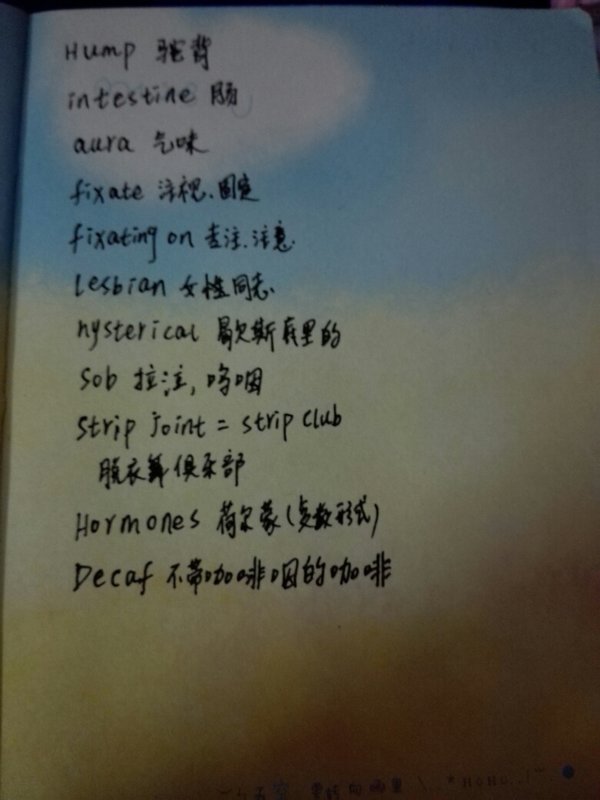 Hump 驼背
intestine 肠
aura 气味
fixate 注视、固定
fixating on 专注、注意
Lesbian 女性同志
hysterical 歇斯底里的
Sob 哭泣，呜咽
Strip joint = strip club
脱衣舞俱乐部
Hormones 荷尔蒙(复数形式)
Decaf 不带咖啡因的咖啡
HOHO..!